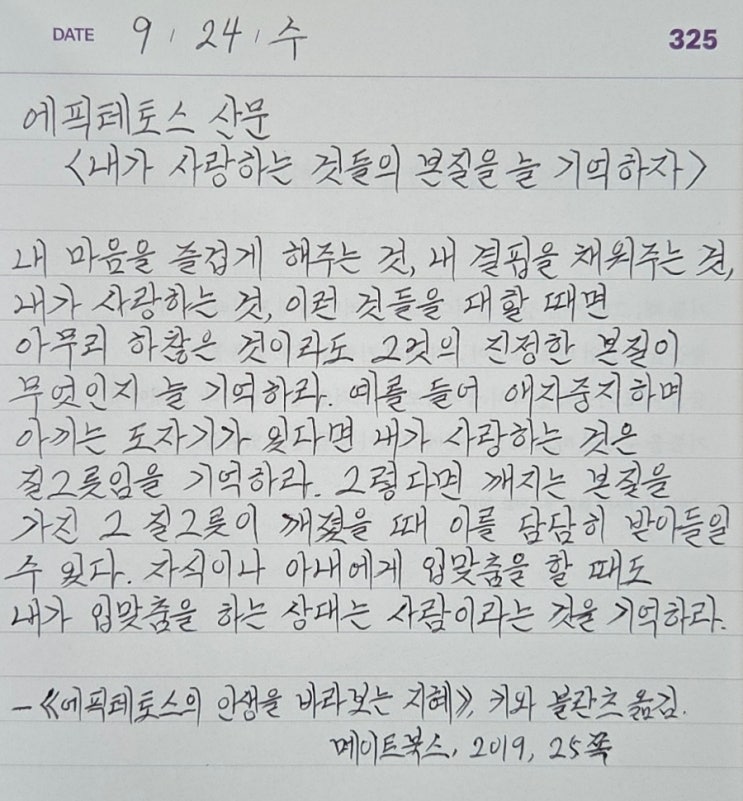 DATE 9 / 24 / 수 325
에픽테토스 산문
<내가 사랑하는 것들의 본질을 늘 기억하자>
내 마음을 즐겁게 해주는 것, 내 결핍을 채워주는 것,
내가 사랑하는 것, 이런 것들을 대할 때면
아무리 하찮은 것이라도 그것의 진정한 본질이
무엇인지 늘 기억하라. 예를 들어 애지중지하며
아끼는 도자기가 있다면 내가 사랑하는 것은
질그릇임을 기억하라. 그렇다면 깨지는 본질을
가진 그 질그릇이 깨졌을 때 이를 담담히 받아들일
수 있다. 자식이나 아내에게 입맞춤을 할 때도
내가 입맞춤을 하는 상대는 사람이라는 것을 기억하라.
-《에픽테토스의 인생을 바라보는 지혜》, 키와 블란츠 옮김.
메이트북스, 2019, 25쪽